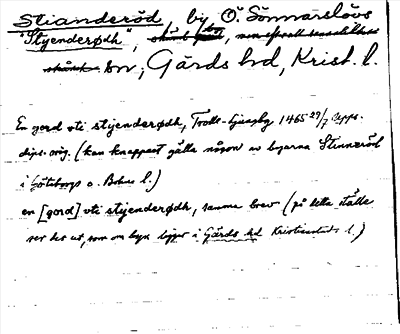 Stianderöd, by Ö Sönnarslövs
"Styenderødh",
sn, Gärds hd, Krist. l.
En gord vti stijenderødh, Trolle-Ljungby 1465 29/7 Upps.
dipl. orig. (kan knappast gälla någon av byarna Stinneröd
i Göteborgs o. Bohus l.)
en [gord] vti stijenderødh, samma brev (på detta ställe
ser det ut, som om byn ligger i Gärds hd Kristianstads l.)